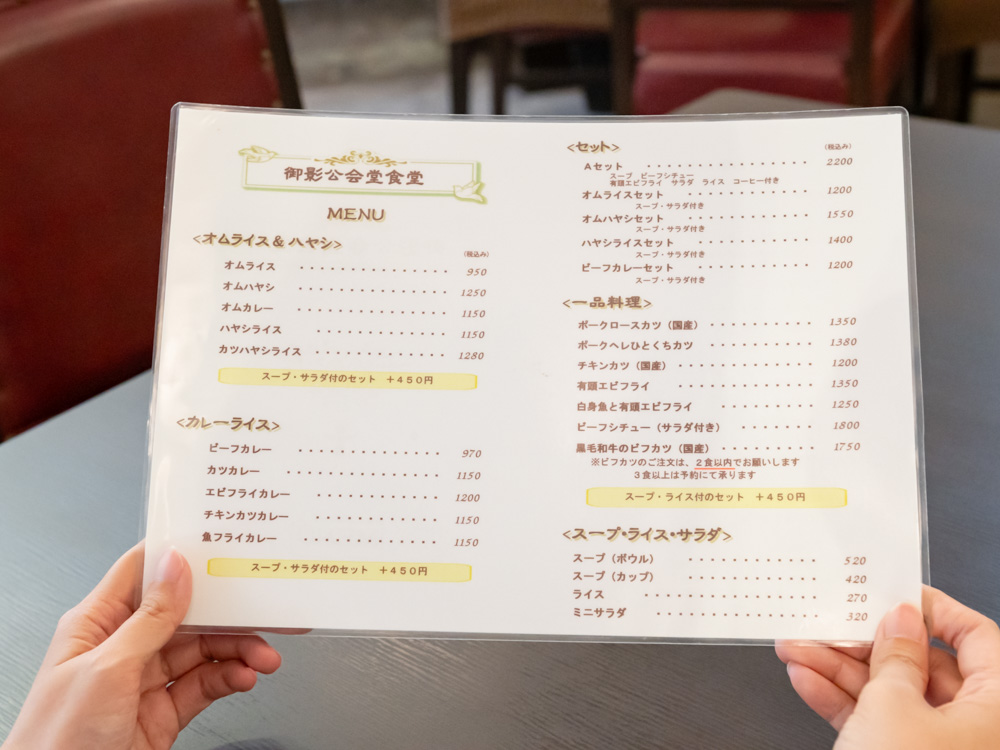 御影公会堂食堂
MENU
<オムライス＆ハヤシ>
(税込み)
オムライス ・・・・・・・・・・・・・・・ 950
オムハヤシ ・・・・・・・・・・・・・ 1250
オムカレー ・・・・・・・・・・・・・ 1150
ハヤシライス ・・・・・・・・・・・ 1150
カツハヤシライス ・・・・・・・・・・・ 1280
スープ・サラダ付のセット ＋４５０円
<カレーライス>
ビーフカレー ・・・・・・・・・・・・ 970
カツカレー ・・・・・・・・・・・・・ 1150
エビフライカレー ・・・・・・・・・・・ 1200
チキンカツカレー ・・・・・・・・・・・ 1150
魚フライカレー ・・・・・・・・・・・・ 1150
スープ・サラダ付のセット ＋４５０円
<セット>
(税込み)
Ａセット ・・・・・・・・・・・・・・・ 2200
スープ ビーフシチュー
有頭エビフライ サラダ ライス コーヒー付き
オムライスセット ・・・・・・・・・・・ 1200
スープ・サラダ付き
オムハヤシセット ・・・・・・・・・・・ 1550
スープ・サラダ付き
ハヤシライスセット ・・・・・・・・・・ 1400
スープ・サラダ付き
ビーフカレーセット ・・・・・・・・・・ 1200
スープ・サラダ付き
<一品料理>
ポークロースカツ（国産） ・・・・・・・・・ 1350
ポークヘレひとくちカツ ・・・・・・・・・ 1380
チキンカツ（国産） ・・・・・・・・・・・ 1200
有頭エビフライ ・・・・・・・・・・・・ 1350
白身魚と有頭エビフライ ・・・・・・・・ 1250
ビーフシチュー（サラダ付き） ・・・・・・・ 1800
黒毛和牛のビフカツ（国産） ・・・・・・・・ 1750
※ビフカツのご注文は、２食以内でお願いします
３食以上は予約にて承ります
スープ・ライス付のセット ＋４５０円
<スープ・ライス・サラダ>
スープ（ボウル） ・・・・・・・・・・・ 520
スープ（カップ） ・・・・・・・・・・・ 420
ライス ・・・・・・・・・・・・・・・ 270
ミニサラダ ・・・・・・・・・・・・・・ 320